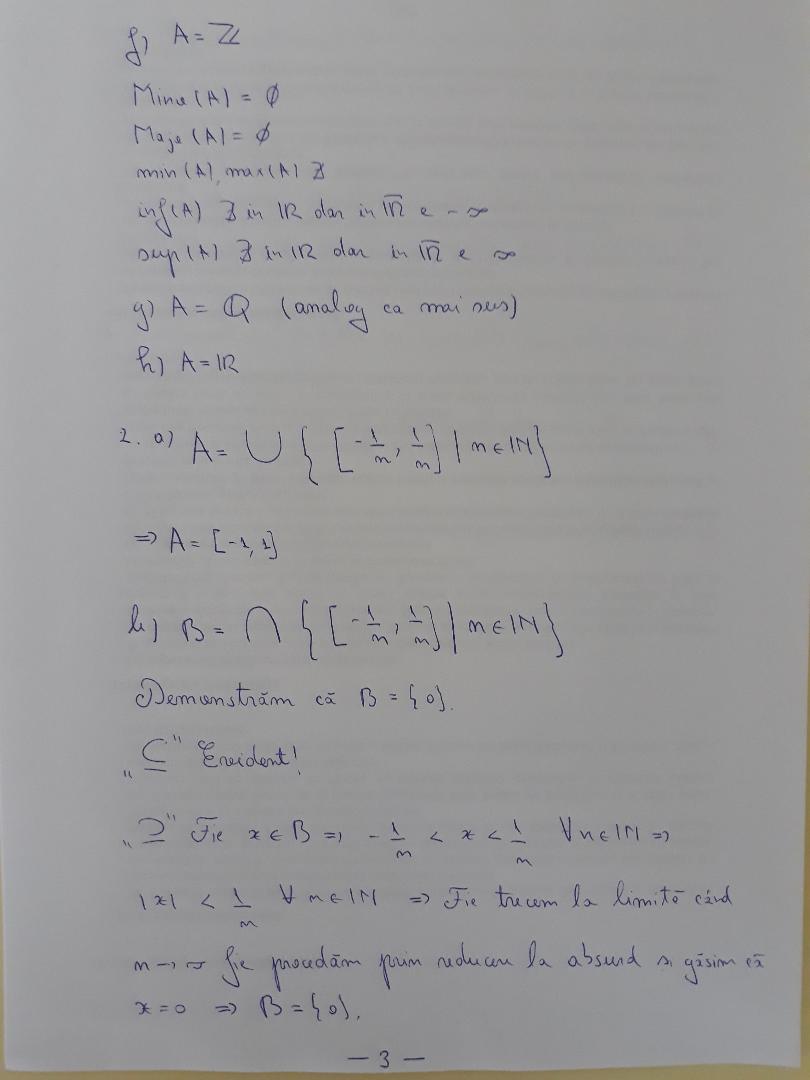 f) A = ℤ
Mino(A) = ∅
Majo(A) = ∅
min(A), max(A) ∄
inf(A) ∄ in ℝ dar in ℝ̅ e -∞
sup(A) ∄ in ℝ dar in ℝ̅ e ∞
g) A = ℚ (analog ca mai sus)
h) A = ℝ
2. a) A = ∪ { [-1/n, 1/n] | n ∈ ℕ }
⇒ A = [-1, 1]
b) B = ∩ { [-1/n, 1/n] | n ∈ ℕ }
Demonstrăm că B = {0}.
„⊆" Evident!
„⊇" Fie x ∈ B ⇒ -1/n < x < 1/n ∀ n ∈ ℕ ⇒
|x| < 1/n ∀ n ∈ ℕ ⇒ Fie trecem la limită când
n → ∞ fie procedăm prin reducere la absurd si găsim că
x = 0 ⇒ B = {0}.
— 3 —